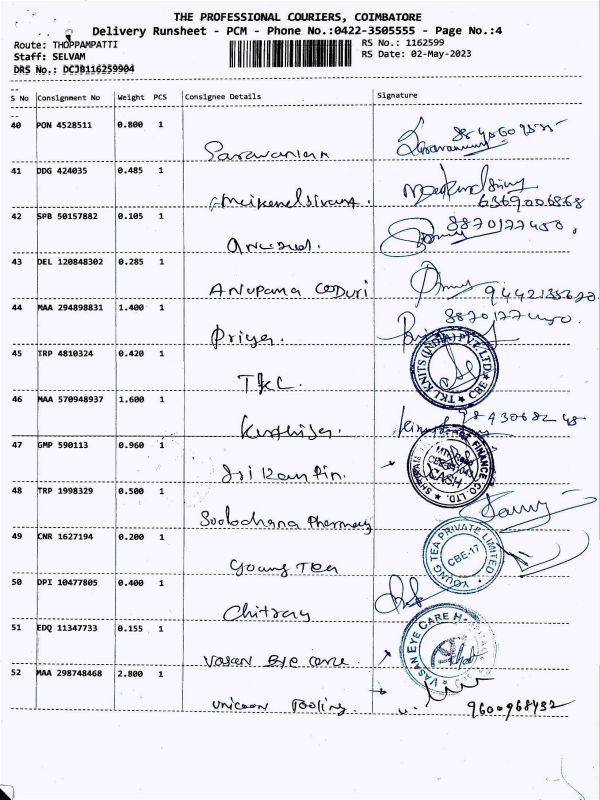 THE PROFESSIONAL COURIERS, COIMBATORE
Delivery Runsheet - PCM - Phone No.:0422-3505555 - Page No.:4
Route: THOPPAMPATTI
Staff: SELVAM
DRS No.: DCJB116259904
RS No.: 1162599
RS Date: 02-May-2023
S No Consignment No Weight PCS Consignee Details Signature
40 PON 4528511 0.800 1
Saravanan
41 DDG 424035 0.485 1
6369006868
42 SPB 50157882 0.105 1
8870177450.
43 DEL 120848302 0.285 1
Anupama CODURI
9442135620
44 MAA 294898831 1.400 1
Priya.
8870177450.
45 TRP 4810324 0.420 1
TKL.
TKT KNITS (INDIA) PVT. LTD. CBE
46 MAA 570948937 1.600 1
47 GMP 590113 0.960 1
Srikanthn.
FINANCE CO. LTD.
CASH
48 TRP 1998329 0.500 1
Sulochana Pharmacy
49 CNR 1627194 0.200 1
young TEA
YOUNG TEA PRIVATE LIMITED
CBE-17
50 DPI 10477805 0.400 1
Chitray
51 EDQ 11347733 0.155 1
Vasan Eye care.
VASAN EYE CARE
52 MAA 298748468 2.800 1
unicorn Tooling.
9600968432